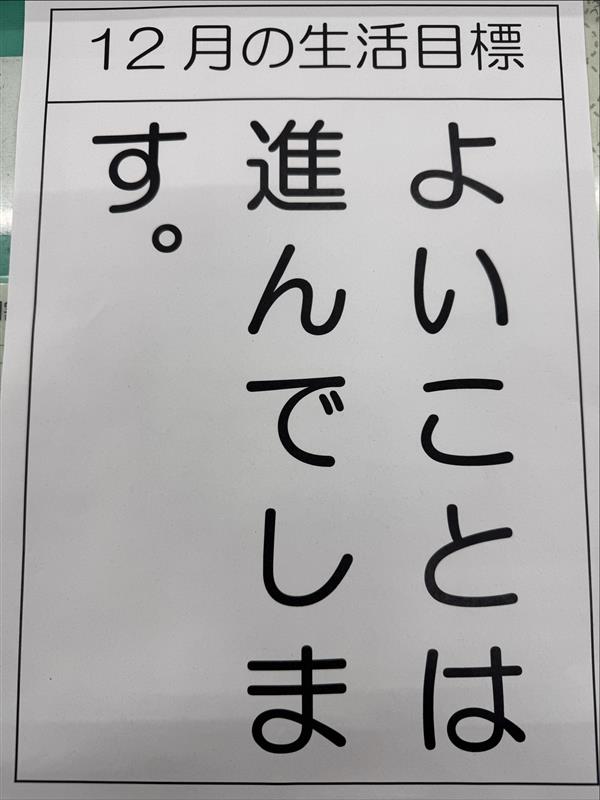 12月の生活目標
よいことは
進んでしま
す。